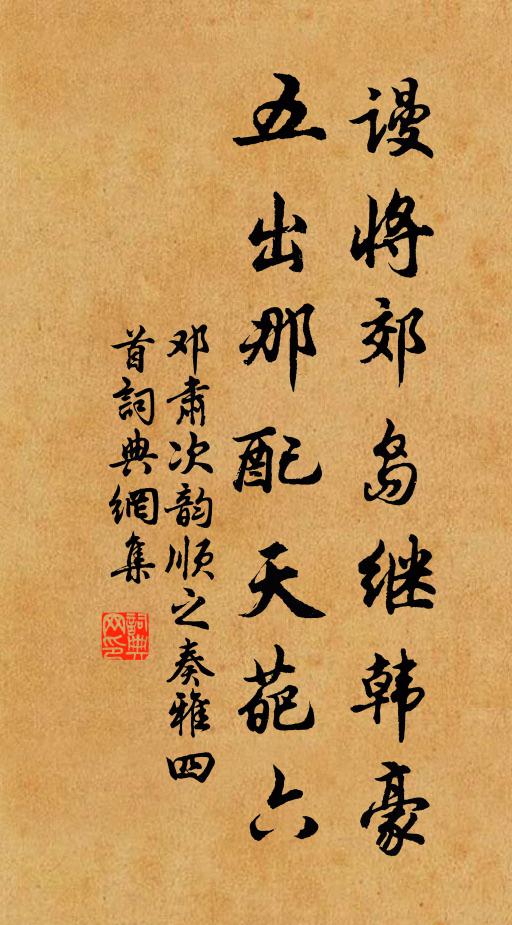 谩将郊岛继韩豪
五出那配天葩六
邓肃次韵顺之奏雅四
首詞典網集
詞典网印